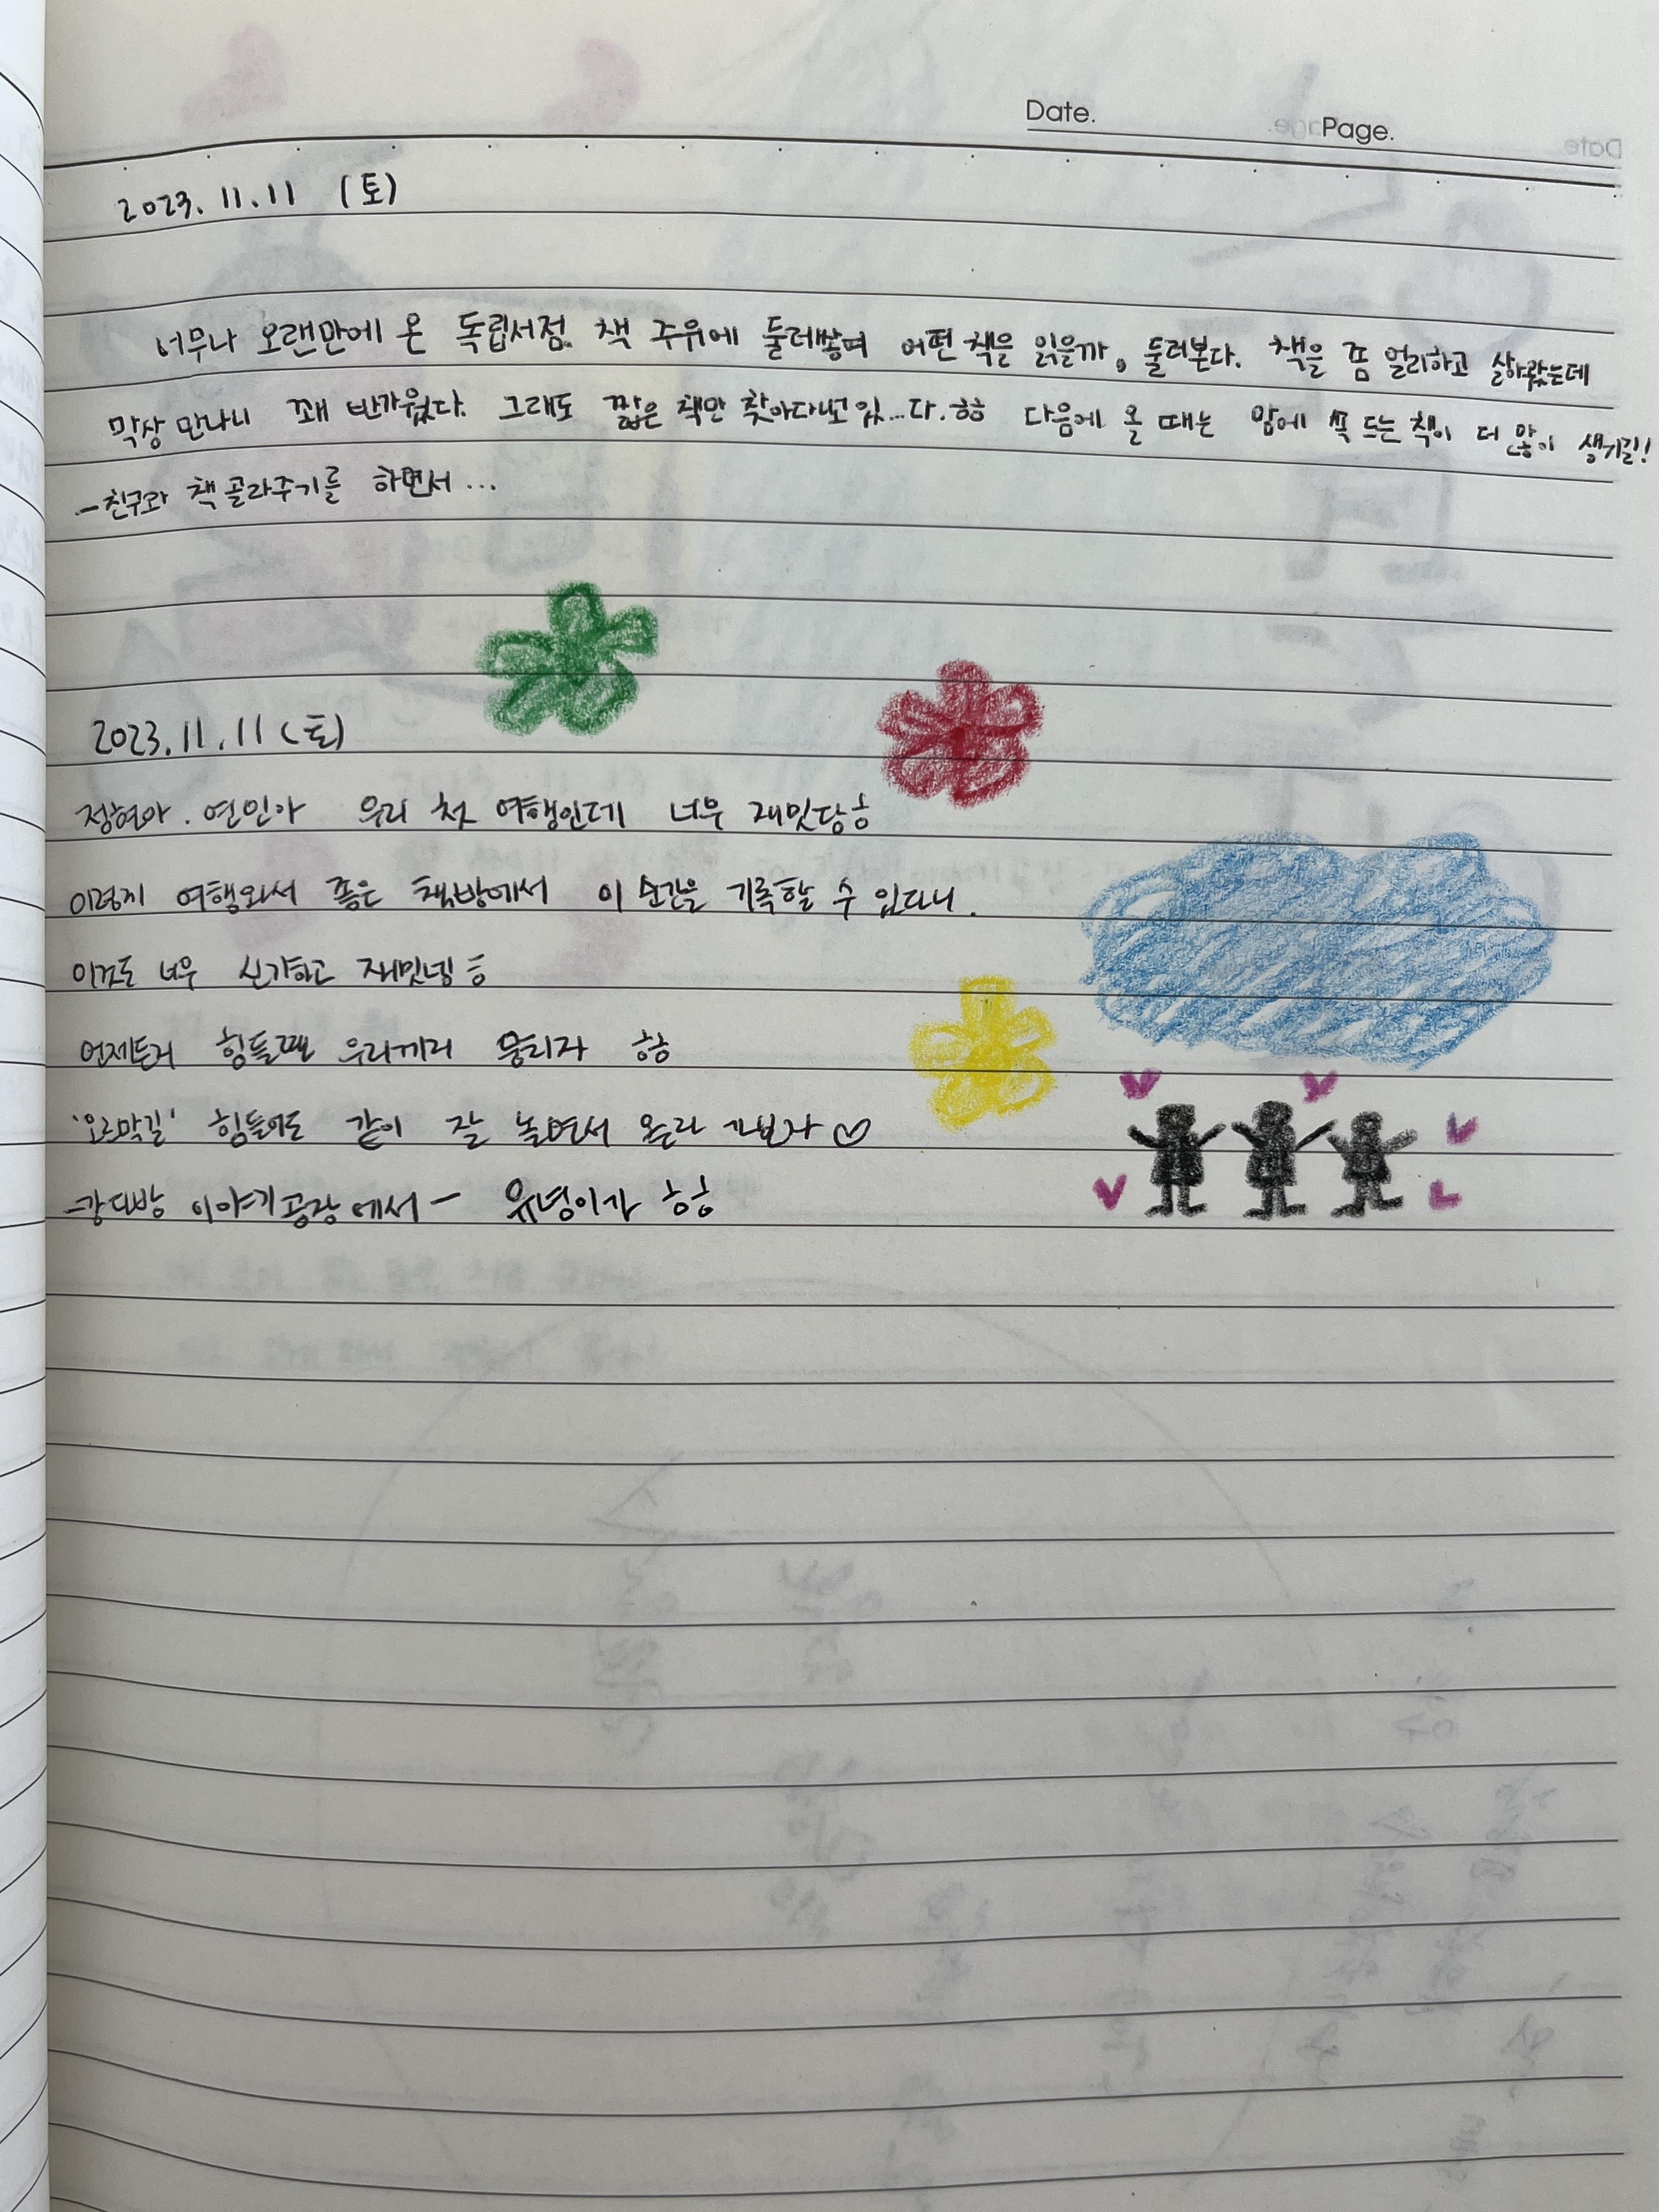 Date. Page.
2023. 11. 11 (토)
너무나 오랜만에 온 독립서점. 책 주위에 둘러쌓여 어떤 책을 읽을까, 둘러본다. 책을 좀 멀리하고 살아왔는데
막상 만나니 꽤 반가웠다. 그래도 짧은 책만 찾아다니고 있...다.ㅎㅎ 다음에 올 때는 맘에 쏙 드는 책이 더 많이 생기길!
- 친구와 책 골라주기를 하면서...
2023. 11. 11 (토)
정현아. 연인아 우리 첫 여행인데 너무 재밌당ㅎ
이렇게 여행와서 좋은 책방에서 이 순간을 기록할 수 있다니.
이것도 너무 신기하고 재밌넹ㅎ
언제든지 힘들때 우리끼리 뭉치자 ㅎㅎ
'오르막길' 힘들어도 같이 잘 놀면서 올라 가보자 ♡
이야기공장에서 - ㅎㅎ